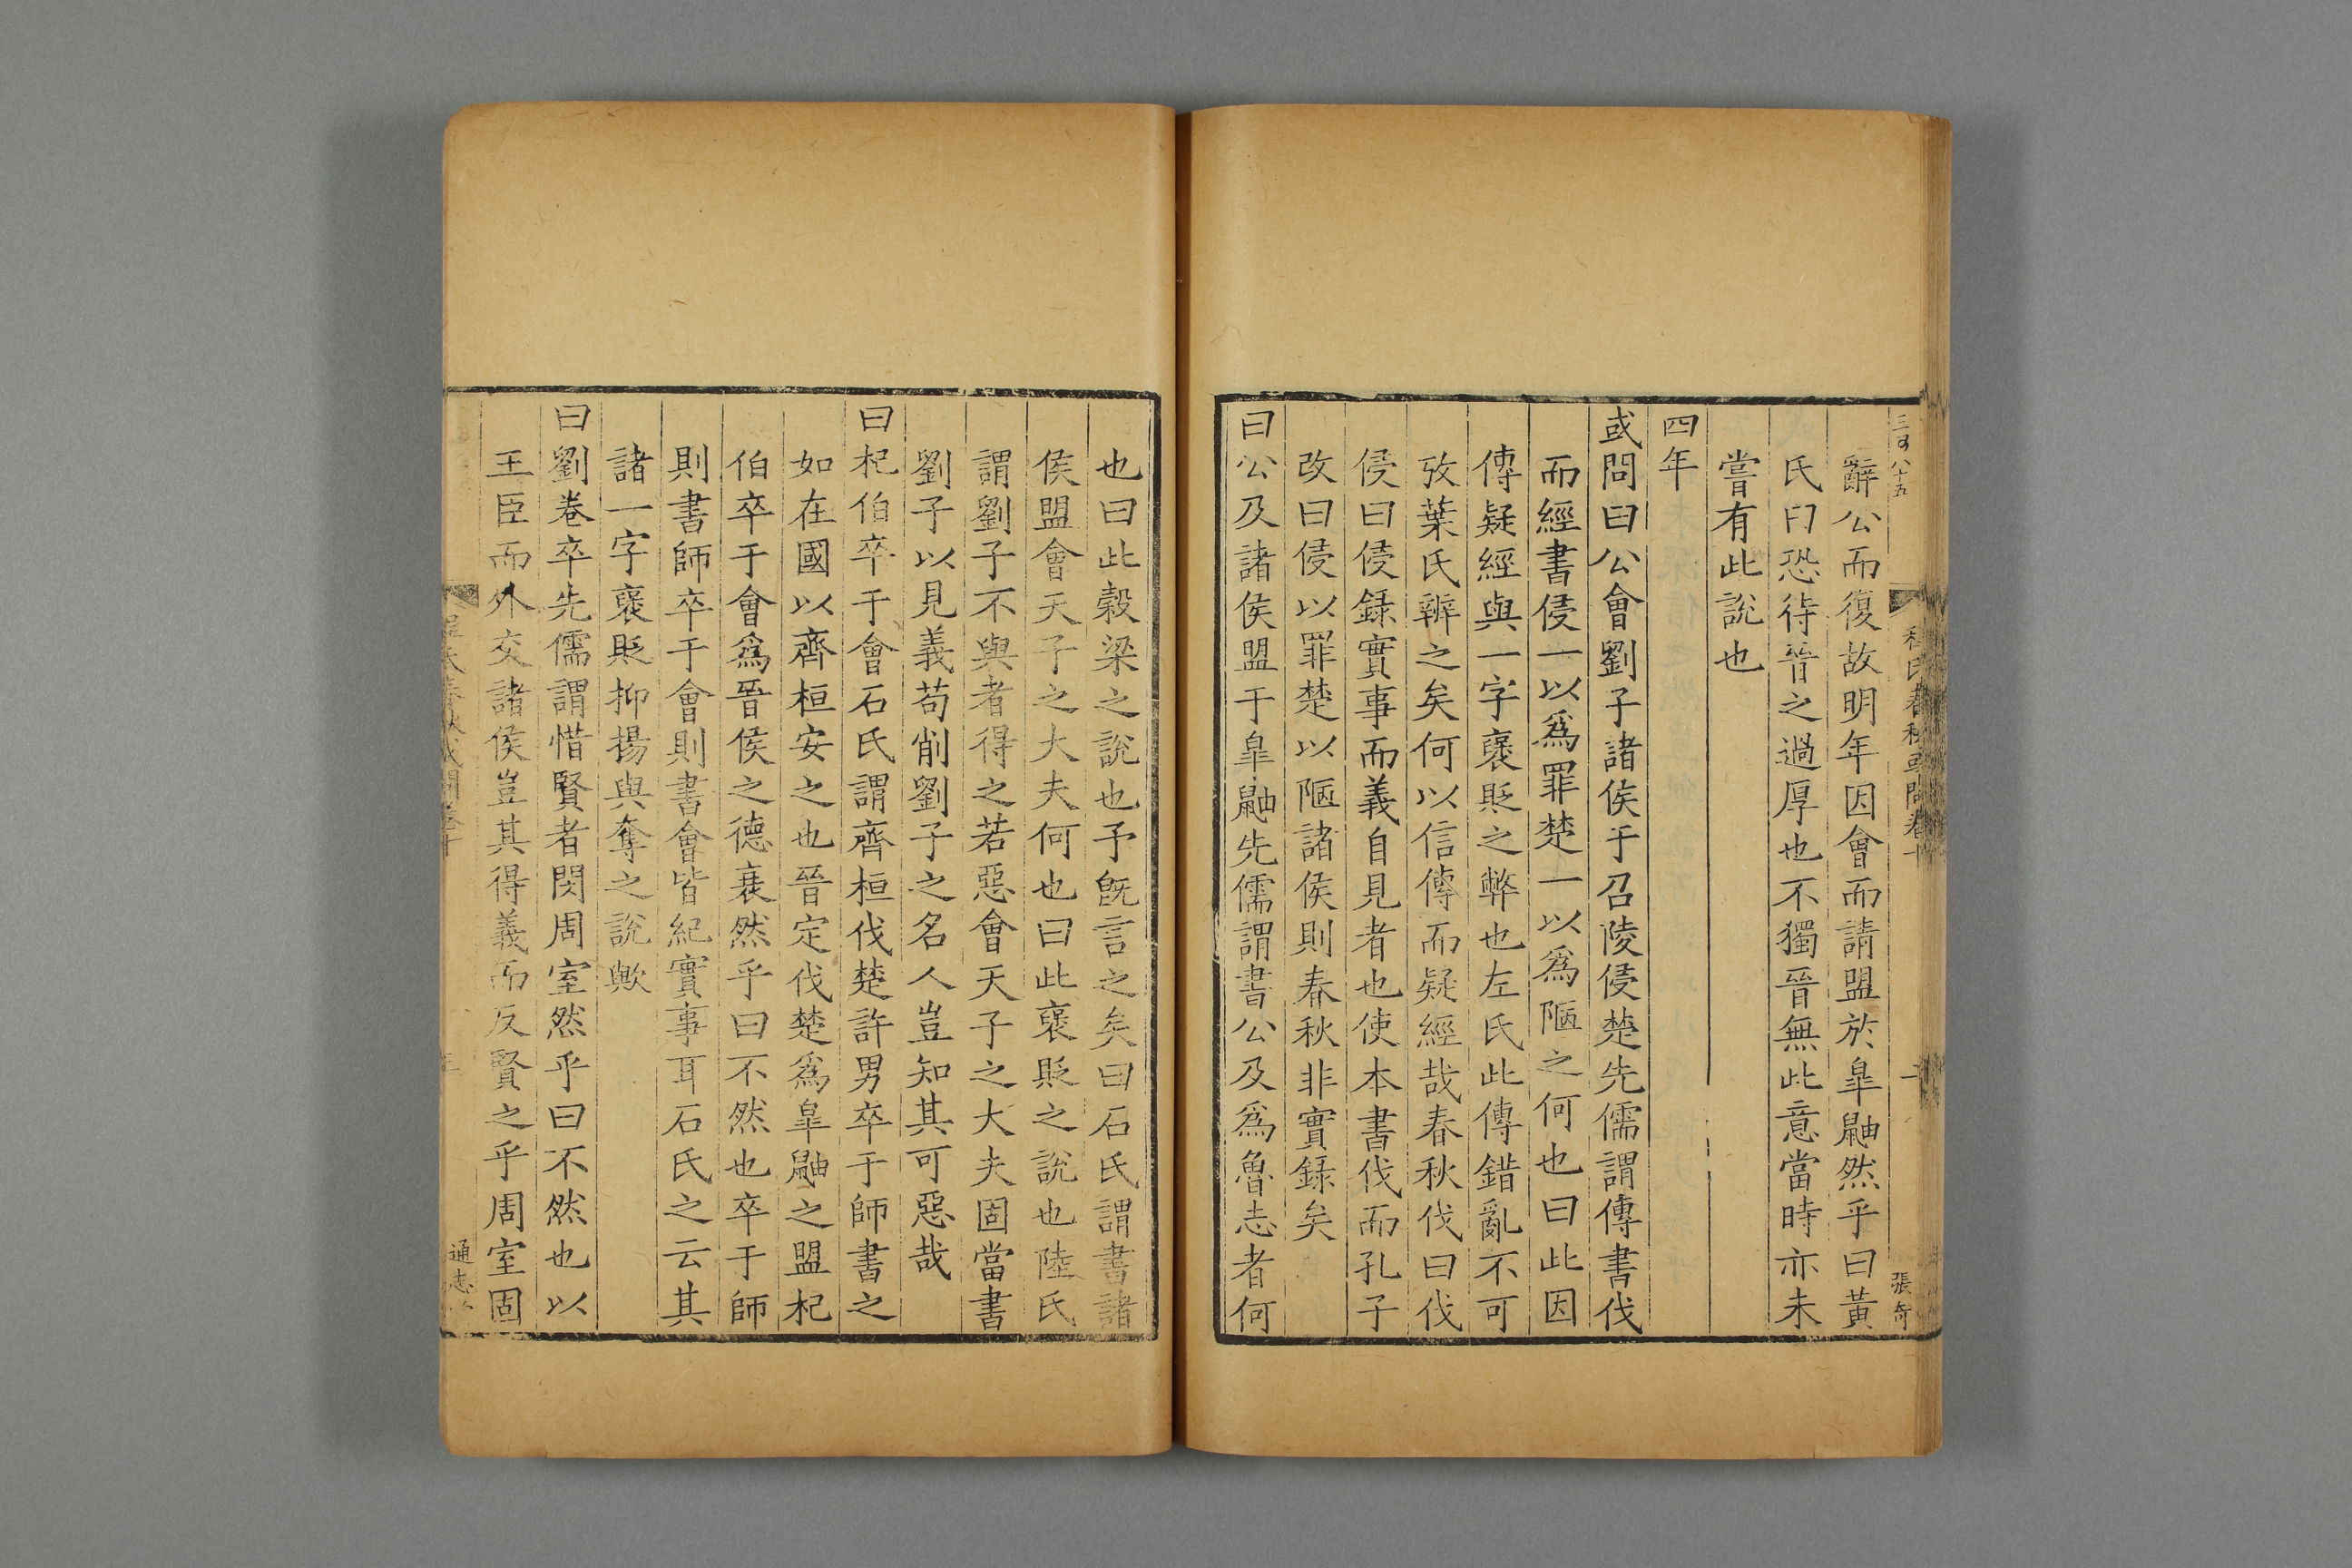 三百八十五
程氏春秋或問卷十
張奇
辭公而復故明年因會而請盟於皐鼬然乎曰黃
氏曰恐待晉之過厚也不獨晉無此意當時亦未
嘗有此說也
四年
或問曰公會劉子諸侯于召陵侵楚先儒謂傳書伐
而經書侵一以爲罪楚一以爲陋之何也曰此因
傳疑經與一字襃貶之弊也左氏此傳錯亂不可
攷葉氏辨之矣何以信傳而疑經哉春秋伐曰伐
侵曰侵錄實事而義自見者也使本書伐而孔子
改曰侵以罪楚以陋諸侯則春秋非實錄矣
曰公及諸侯盟于皐鼬先儒謂書公及爲魯志者何
也曰此穀梁之說也予旣言之矣曰石氏謂書諸
侯盟會天子之大夫何也曰此襃貶之說也陸氏
謂劉子不與者得之若惡會天子之大夫固當書
劉子以見義苟削劉子之名人豈知其可惡哉
曰杞伯卒于會石氏謂齊桓伐楚許男卒于師書之
如在國以齊桓安之也晉定伐楚爲皐鼬之盟杞
伯卒于會爲晉侯之德衰然乎曰不然也卒于師
則書師卒于會則書會皆紀實事耳石氏之云其
諸一字襃貶抑揚與奪之說歟
曰劉卷卒先儒謂惜賢者閔周室然乎曰不然也以
王臣而外交諸侯豈其得義而反賢之乎周室固
程氏春秋或問卷十
通志